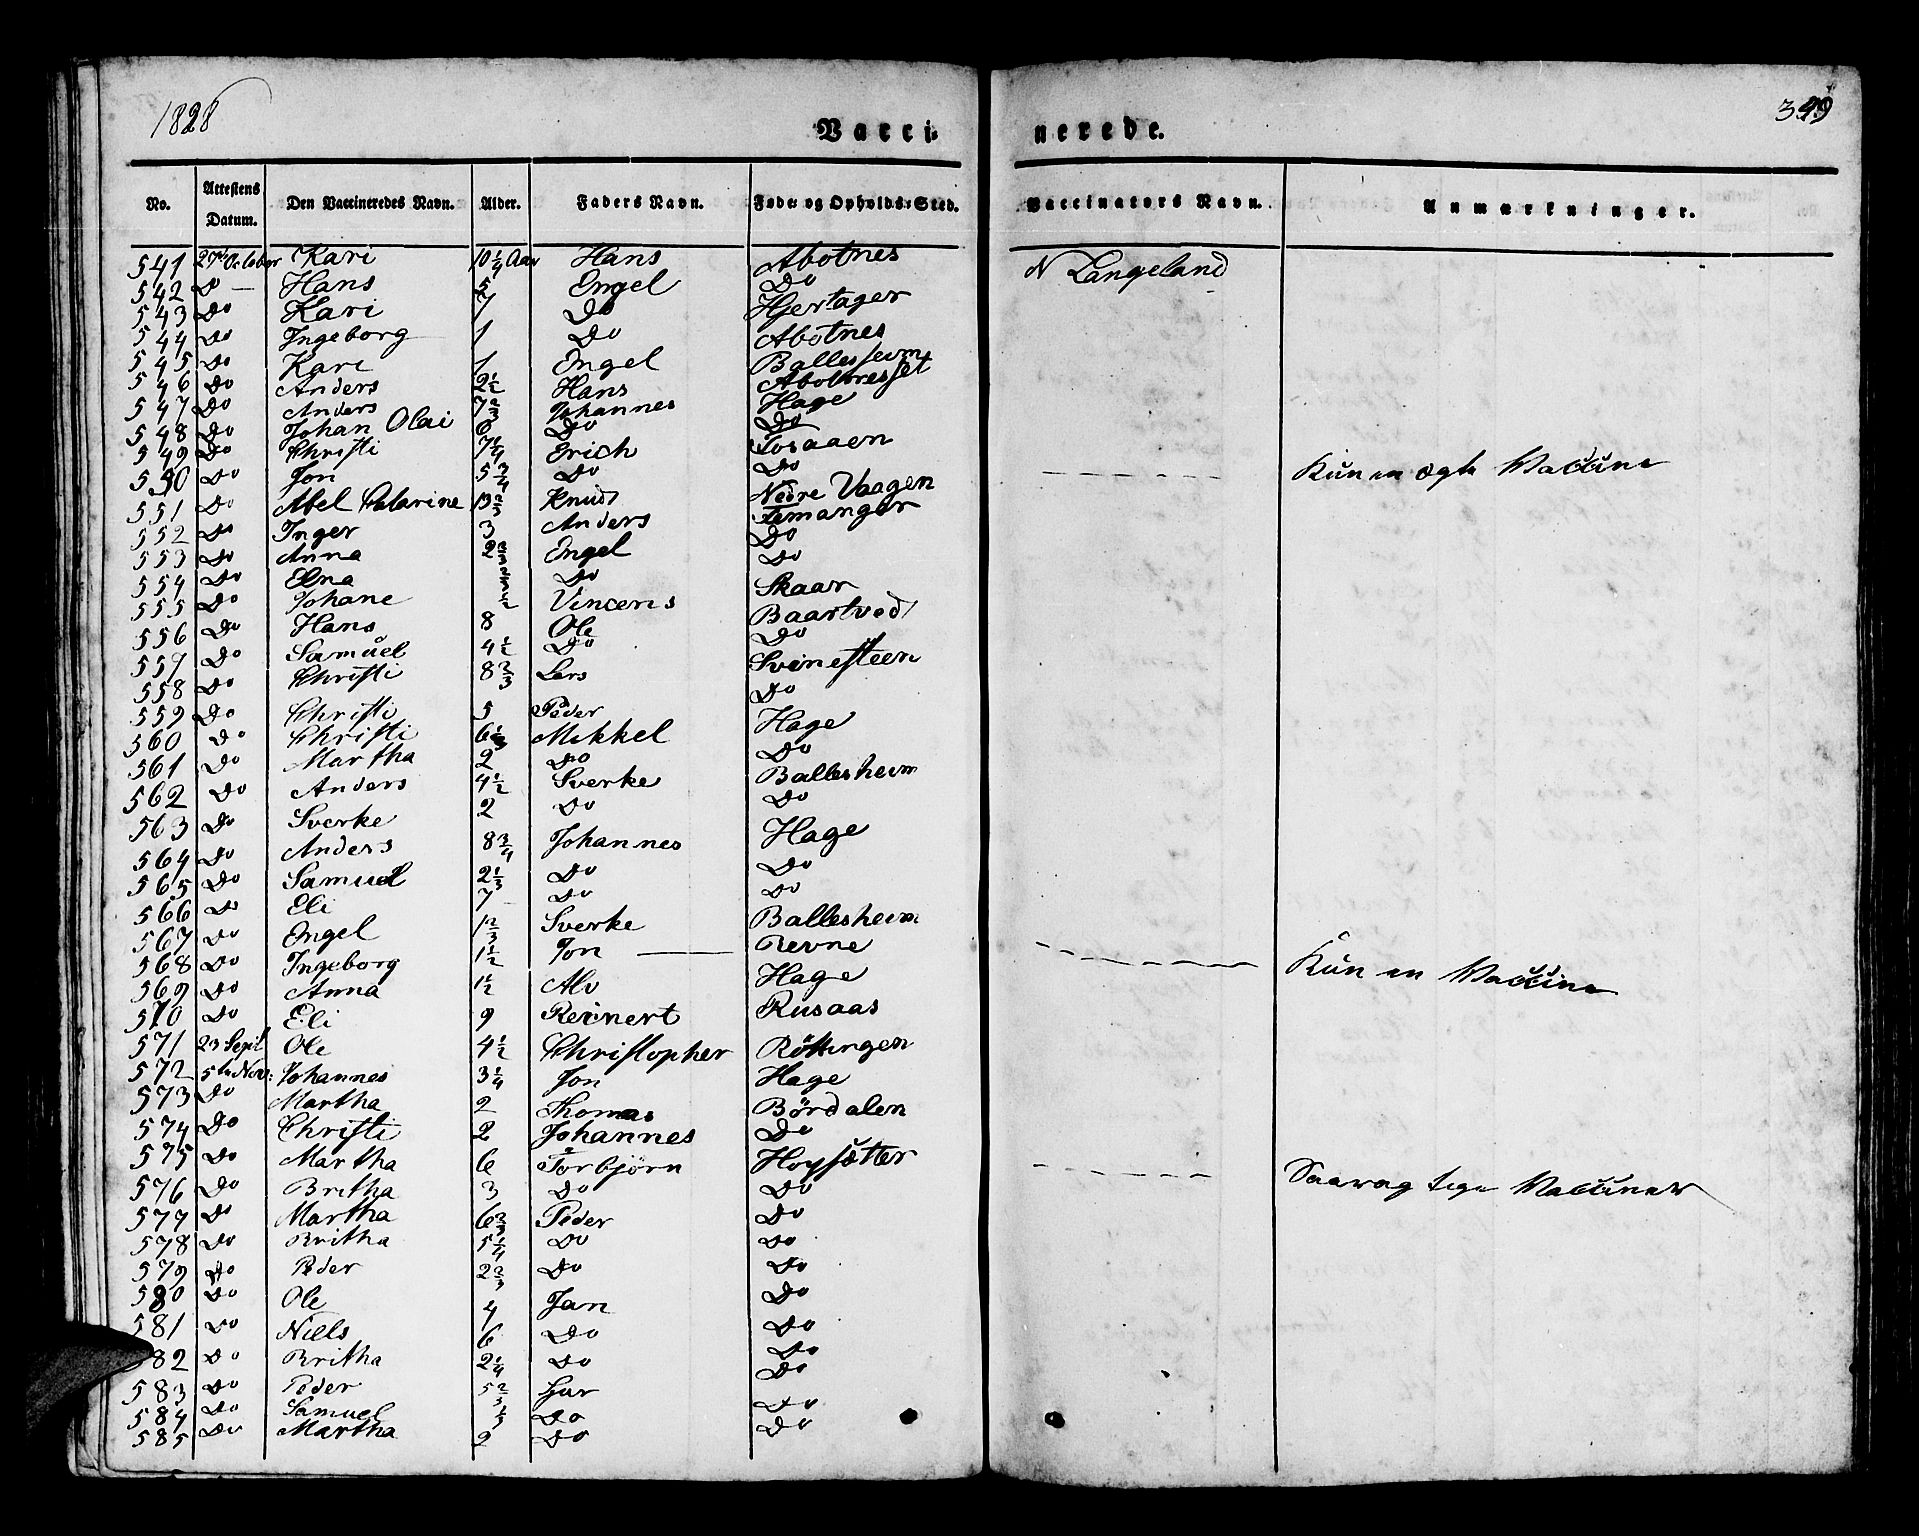 1828
349
Vacci- nerede.
No. Attestens Datum. Den Vaccineredes Navn. Alder. Faders Navn. Føde- og Opholds-Sted. Vaccinators Navn. Anmærkninger.
541 27de October Kari 10 1/4 Aar Hans Abotnes N Langeland
542 Do Hans 5 Engel Do
543 Do Kari 7 Do Hjertager
544 Do Ingeborg 1 Do Abotnes
545 Do Kari 1 Engel Ballesheim
546 Do Anders 2 1/2 Hans
547 Do Anders 7 2/3 Johannes Hage
548 Do Johan Olai 6 Do Do
549 Do Christi 7 1/4 Erich Tosaaen
550 Do Jon 5 3/4 Do Do Kun en ægte Vaccine
551 Do Abel Catarine 13 2/3 Knud Nedre Vaagen
552 Do Inger 3 Anders Femanger
553 Do Anna 2 2/3 Engel Do
554 Do Elna 2/3 Do Do
555 Do Johane 1/2 Vincents Skaar
556 Do Hans 8 Ole Baartved
557 Do Samuel 4 1/2 Do Do
558 Do Christi 8 2/3 Lars Svinesteen
559 Do Christi 5 Peder Do
560 Do Christi 6 1/3 Mikkel Hage
561 Do Martha 2 Do Do
562 Do Anders 4 1/2 Sverke Ballesheim
563 Do Sverke 2 Do Do
564 Do Anders 8 3/4 Johannes Hage
565 Do Samuel 2 1/3 Do Do
566 Do Eli 7 Do Do
567 Do Engel 1 2/3 Sverke Ballesheim
568 Do Ingeborg 1 1/2 Jon Revne Kun en Vaccine
569 Do Anna 1 1/2 Alv Hage
570 Do Eli 9 Reinert Rusaas
571 23 Sept Ole 4 1/2 Christopher Röttingen
572 5te Nov: Johannes 3 1/4 Jon Hage
573 Do Martha 2 Thomas Bördalen
574 Do Christi 2 Johannes Do
575 Do Martha 6 Torbjörn Hoysætter Vacciner
576 Do Britha 3 Do Do
577 Do Martha 6 2/3 Peder Do
578 Do Britha 5 1/4 Do Do
579 Do Peder 2 2/3 Do Do
580 Do Ole 4 Jan Do
581 Do Niels 6 Do Do
582 Do Britha 2 1/4 Do Do
583 Do Peder 5 2/3 Do
584 Do Samuel 1/3 Do Do
585 Do Martha 2 Do Do